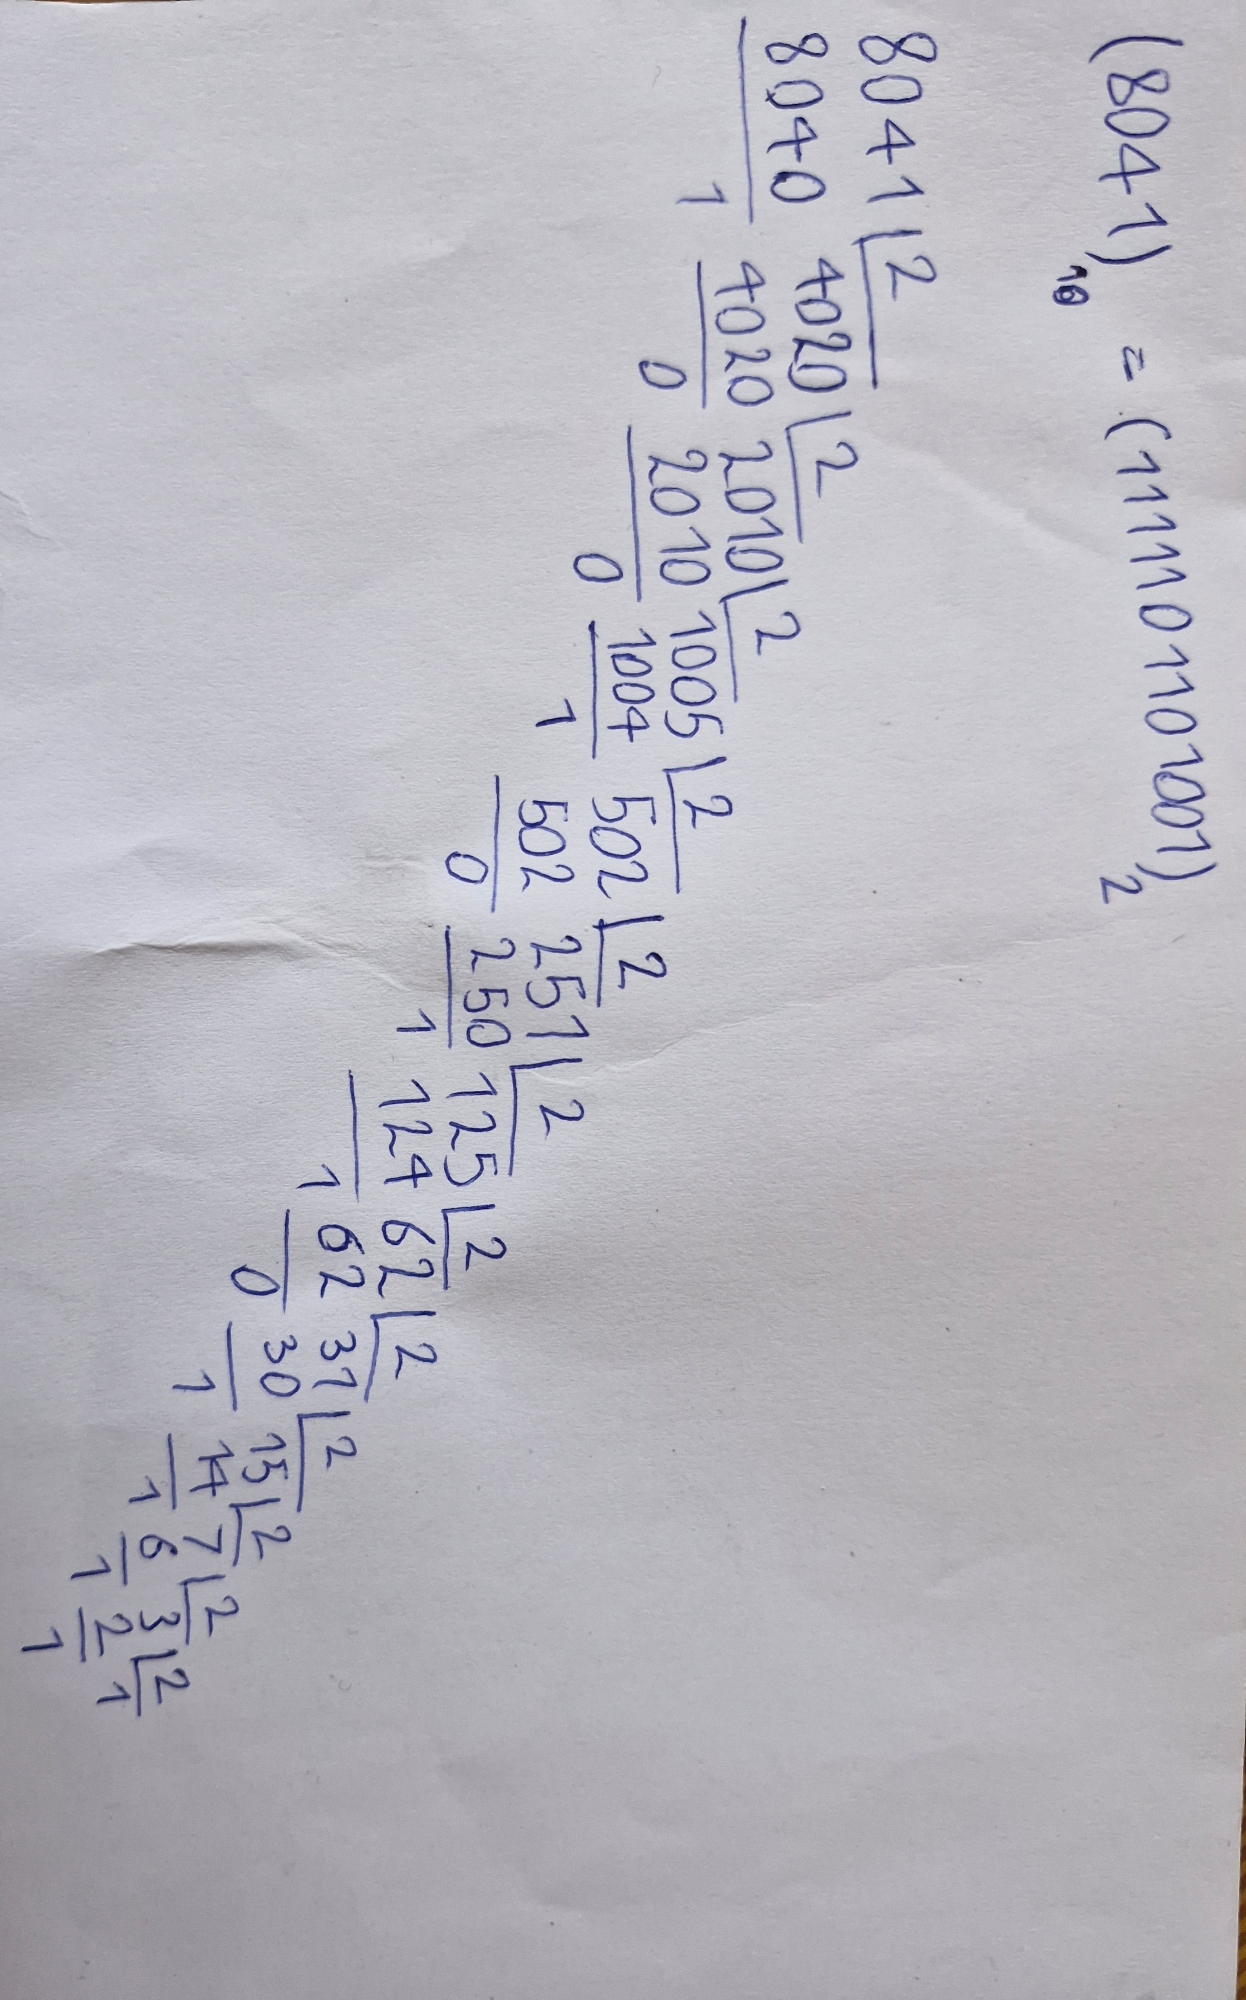 (8041)₁₀ = (1111101101001)₂
8041 2
8040 4020 2
1 4020 2010 2
0 2010 1005 2
0 1004 502 2
1 502 251 2
0 250 125 2
1 124 62 2
1 62 31 2
0 30 15 2
1 14 7 2
1 6 3 2
1 2 1
1